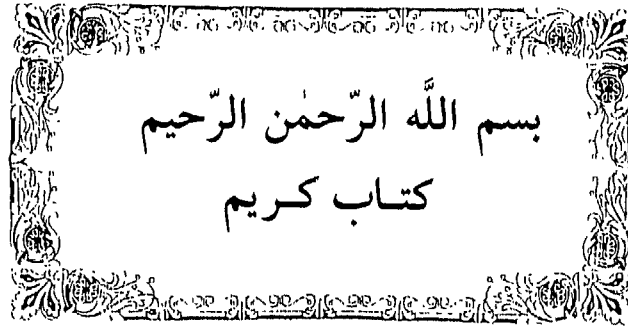 بسم اللَّه الرّحمٰن الرّحيم
كتـاب كـريم